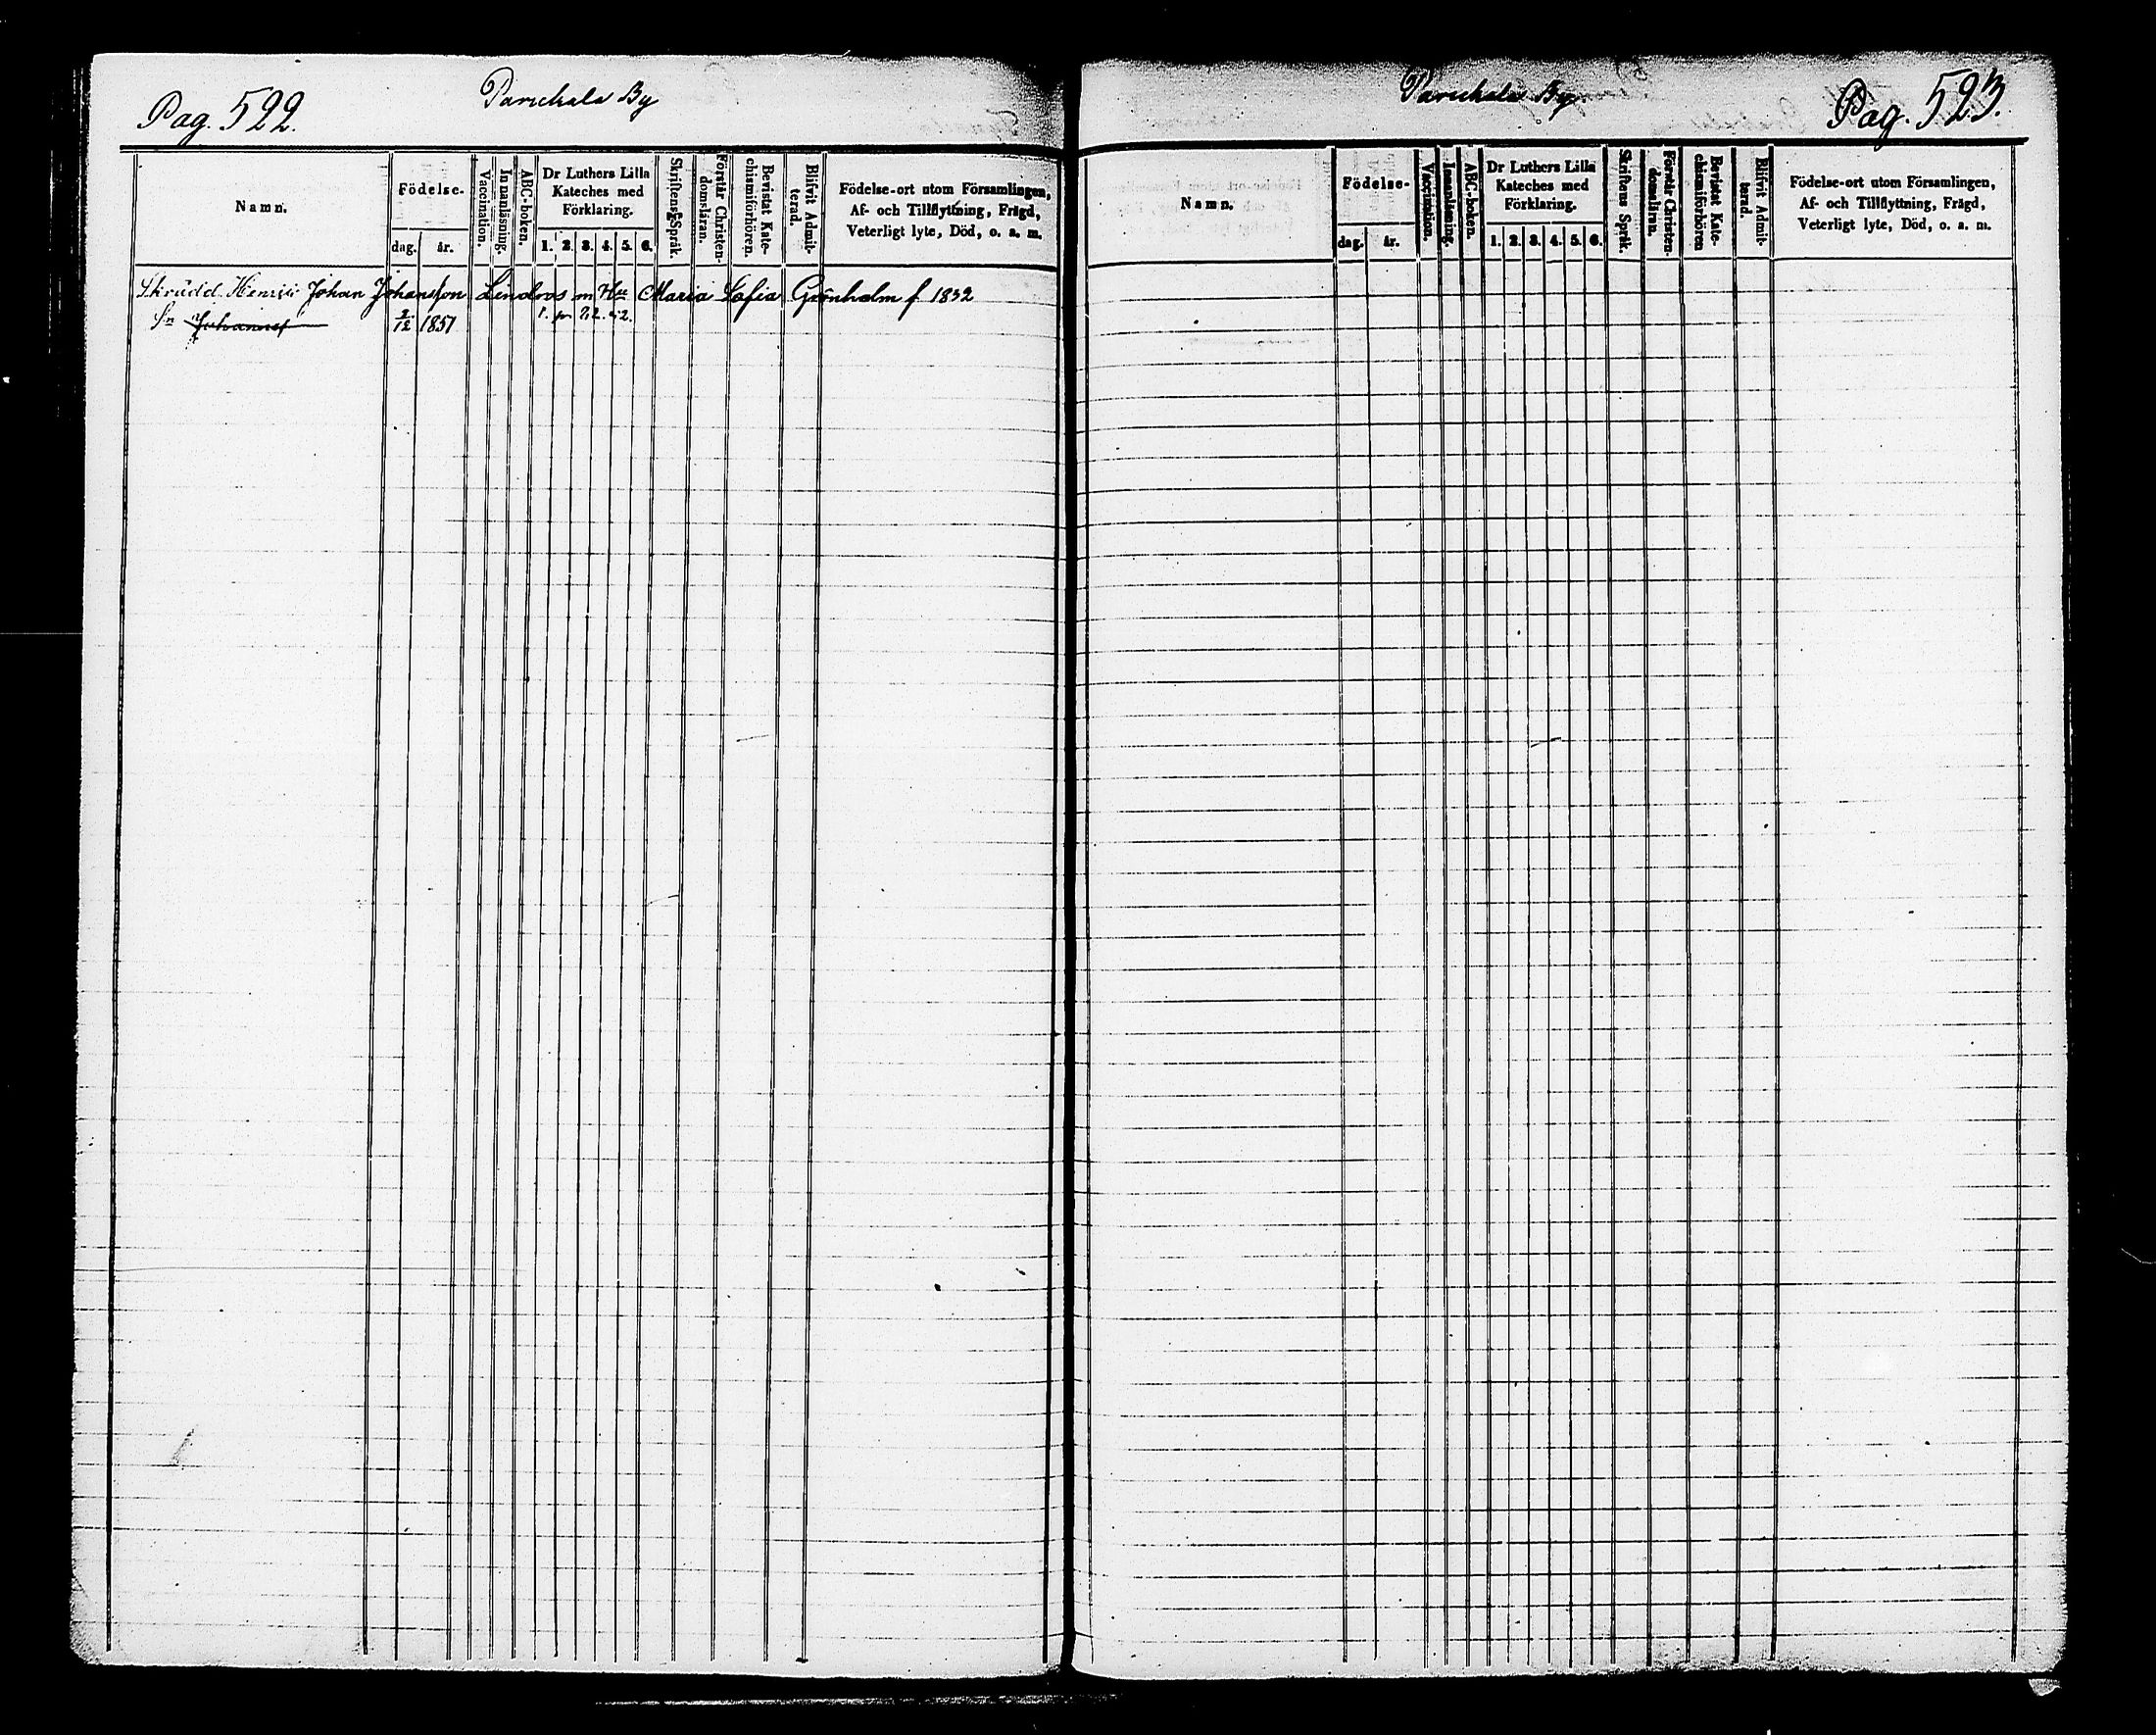 Pag. 522.
Parickala By
Namn.
Födelse-
dag. år.
Vaccination.
Innanläsning.
ABC-boken.
Dr Luthers Lilla
Kateches med
Förklaring.
1. 2. 3. 4. 5. 6.
Skriftens Språk.
Förstår Christen-
domsläran.
Bevistat Kate-
chismiförhören.
Blifvit Admit-
terad.
Födelse-ort utom Församlingen,
Af- och Tillflyttning, Frägd,
Veterligt lyte, Död, o. a. m.
Skrädd. Johan Johansson Lindroos m Hu Maria Sofia Grönholm f 1832
Sn Johannes 2/12 1851
Parickala By.
Pag. 523.
Namn.
Födelse-
dag. år.
Vaccination.
Innanläsning.
ABC-boken.
Dr Luthers Lilla
Kateches med
Förklaring.
1. 2. 3. 4. 5. 6.
Skriftens Språk.
Förstår Christen-
domsläran.
Bevistat Kate-
chismiförhören
Blifvit Admit-
terad.
Födelse-ort utom Församlingen,
Af- och Tillflyttning, Frägd,
Veterligt lyte, Död, o. a. m.